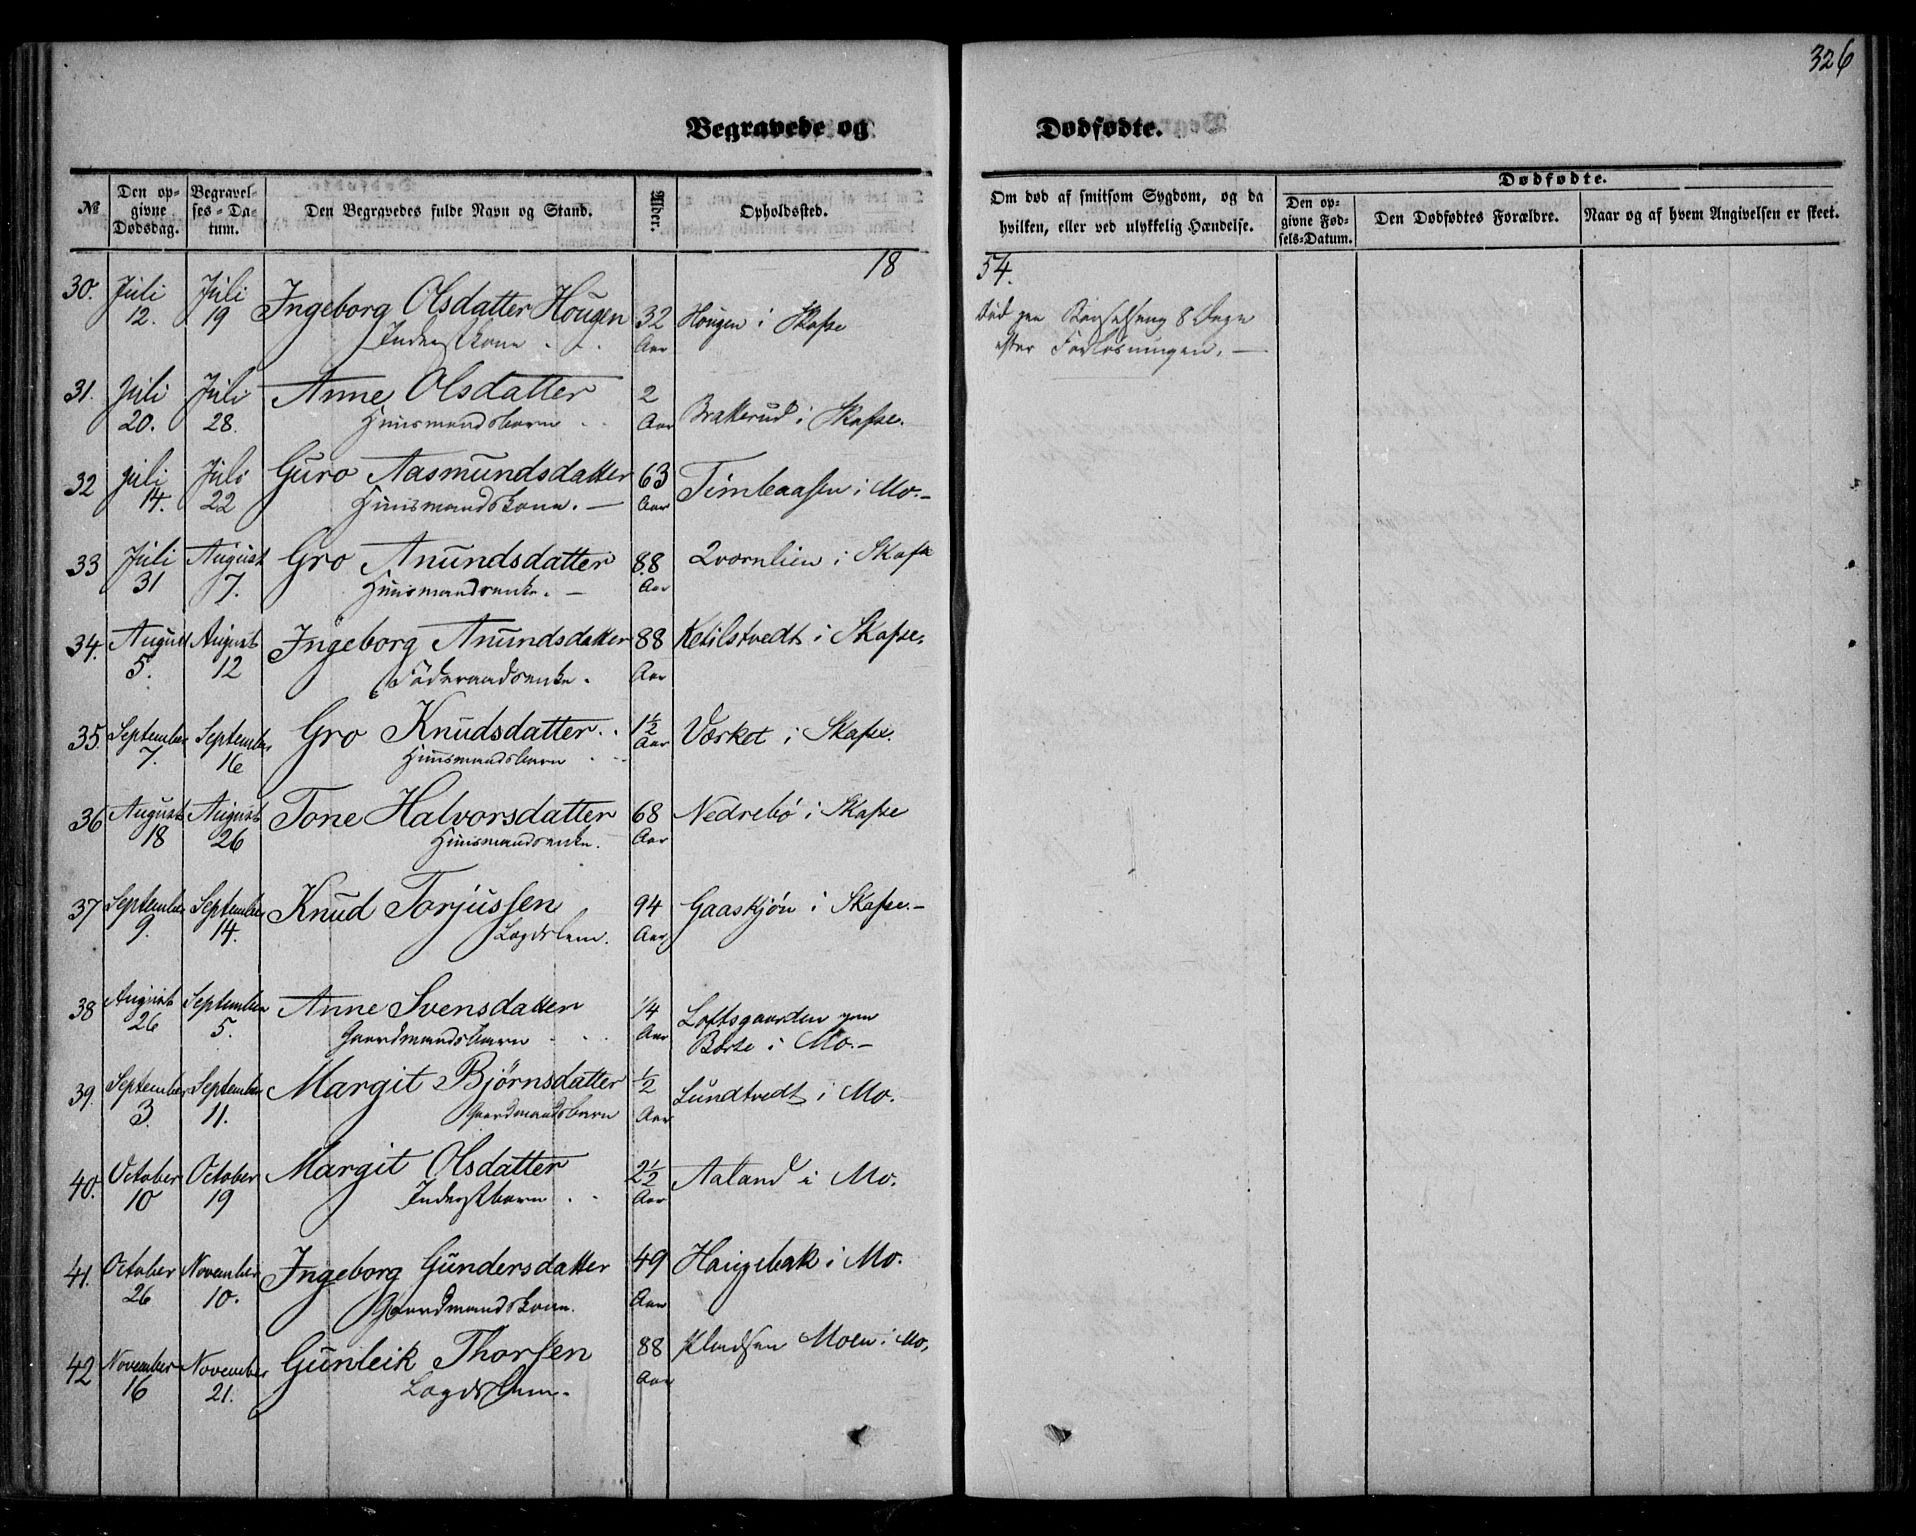 326
Begravede og Dødfødte.
№ Den opgivne Dødsdag. Begravelses-Datum. Den Begravedes fulde Navn og Stand. Alder. Opholdssted. Om død af smitsom Sygdom, og da hvilken, eller ved ulykkelig Hændelse. Dødfødte.
Den opgivne Fødsels-Datum. Den Dødfødtes Forældre. Naar og af hvem Angivelsen er skeet.
18 54.
30. Juli 12. Juli 19 Ingeborg Olsdatter Hougen 32 Aar Hougen i Skafse
Inderstkone
Død paa Barselseng 8 Dage
efter Forløsningen.
31. Juli 20. Juli 28. Anne Olsdatter 2 Aar Brakerud i Skafse.
Huusmandsbarn
32 Juli 14. Juli 22 Guro Aasmundsdatter 63 Aar Timbaasen i Mo.
Huusmandskone.
33 Juli 31 August 7. Gro Anundsdatter 88 Aar Qvornlien i Skafse
Huusmandsenke.
34. August 5. August 12 Ingeborg Anundsdatter 88 Aar Ketilstvedt i Skafse.
Føderaadsenke.
35. September 7. September 16 Gro Knudsdatter 1½ Aar Værket i Skafse.
Huusmandsbarn
36 August 18 August 26 Tone Halvorsdatter 68 Aar Nedrebø i Skafse
Huusmandsenke.
37 September 9. September 14. Knud Torjussen 94 Aar Gaaskjøn i Skafse.
Lægdslem.
38 August 26 September 5. Anne Svensdatter 1/4 Aar Loftsgaarden paa
Gaardmandsbarn Børte i Mo.
39. September 3. September 11. Margit Bjørnsdatter ½ Aar Lundtvedt i Mo.
Gaardmandsbarn
40. October 10 October 19 Margit Olsdatter 2½ Aar Aaland i Mo.
Inderstbarn
41. October 26 November 10. Ingeborg Gundersdatter 49 Aar Haugebak i Mo.
Gaardmandskone.
42 November 16 November 21. Gunleik Thorsen 88 Aar Moen i Mo.
Lægdslem.